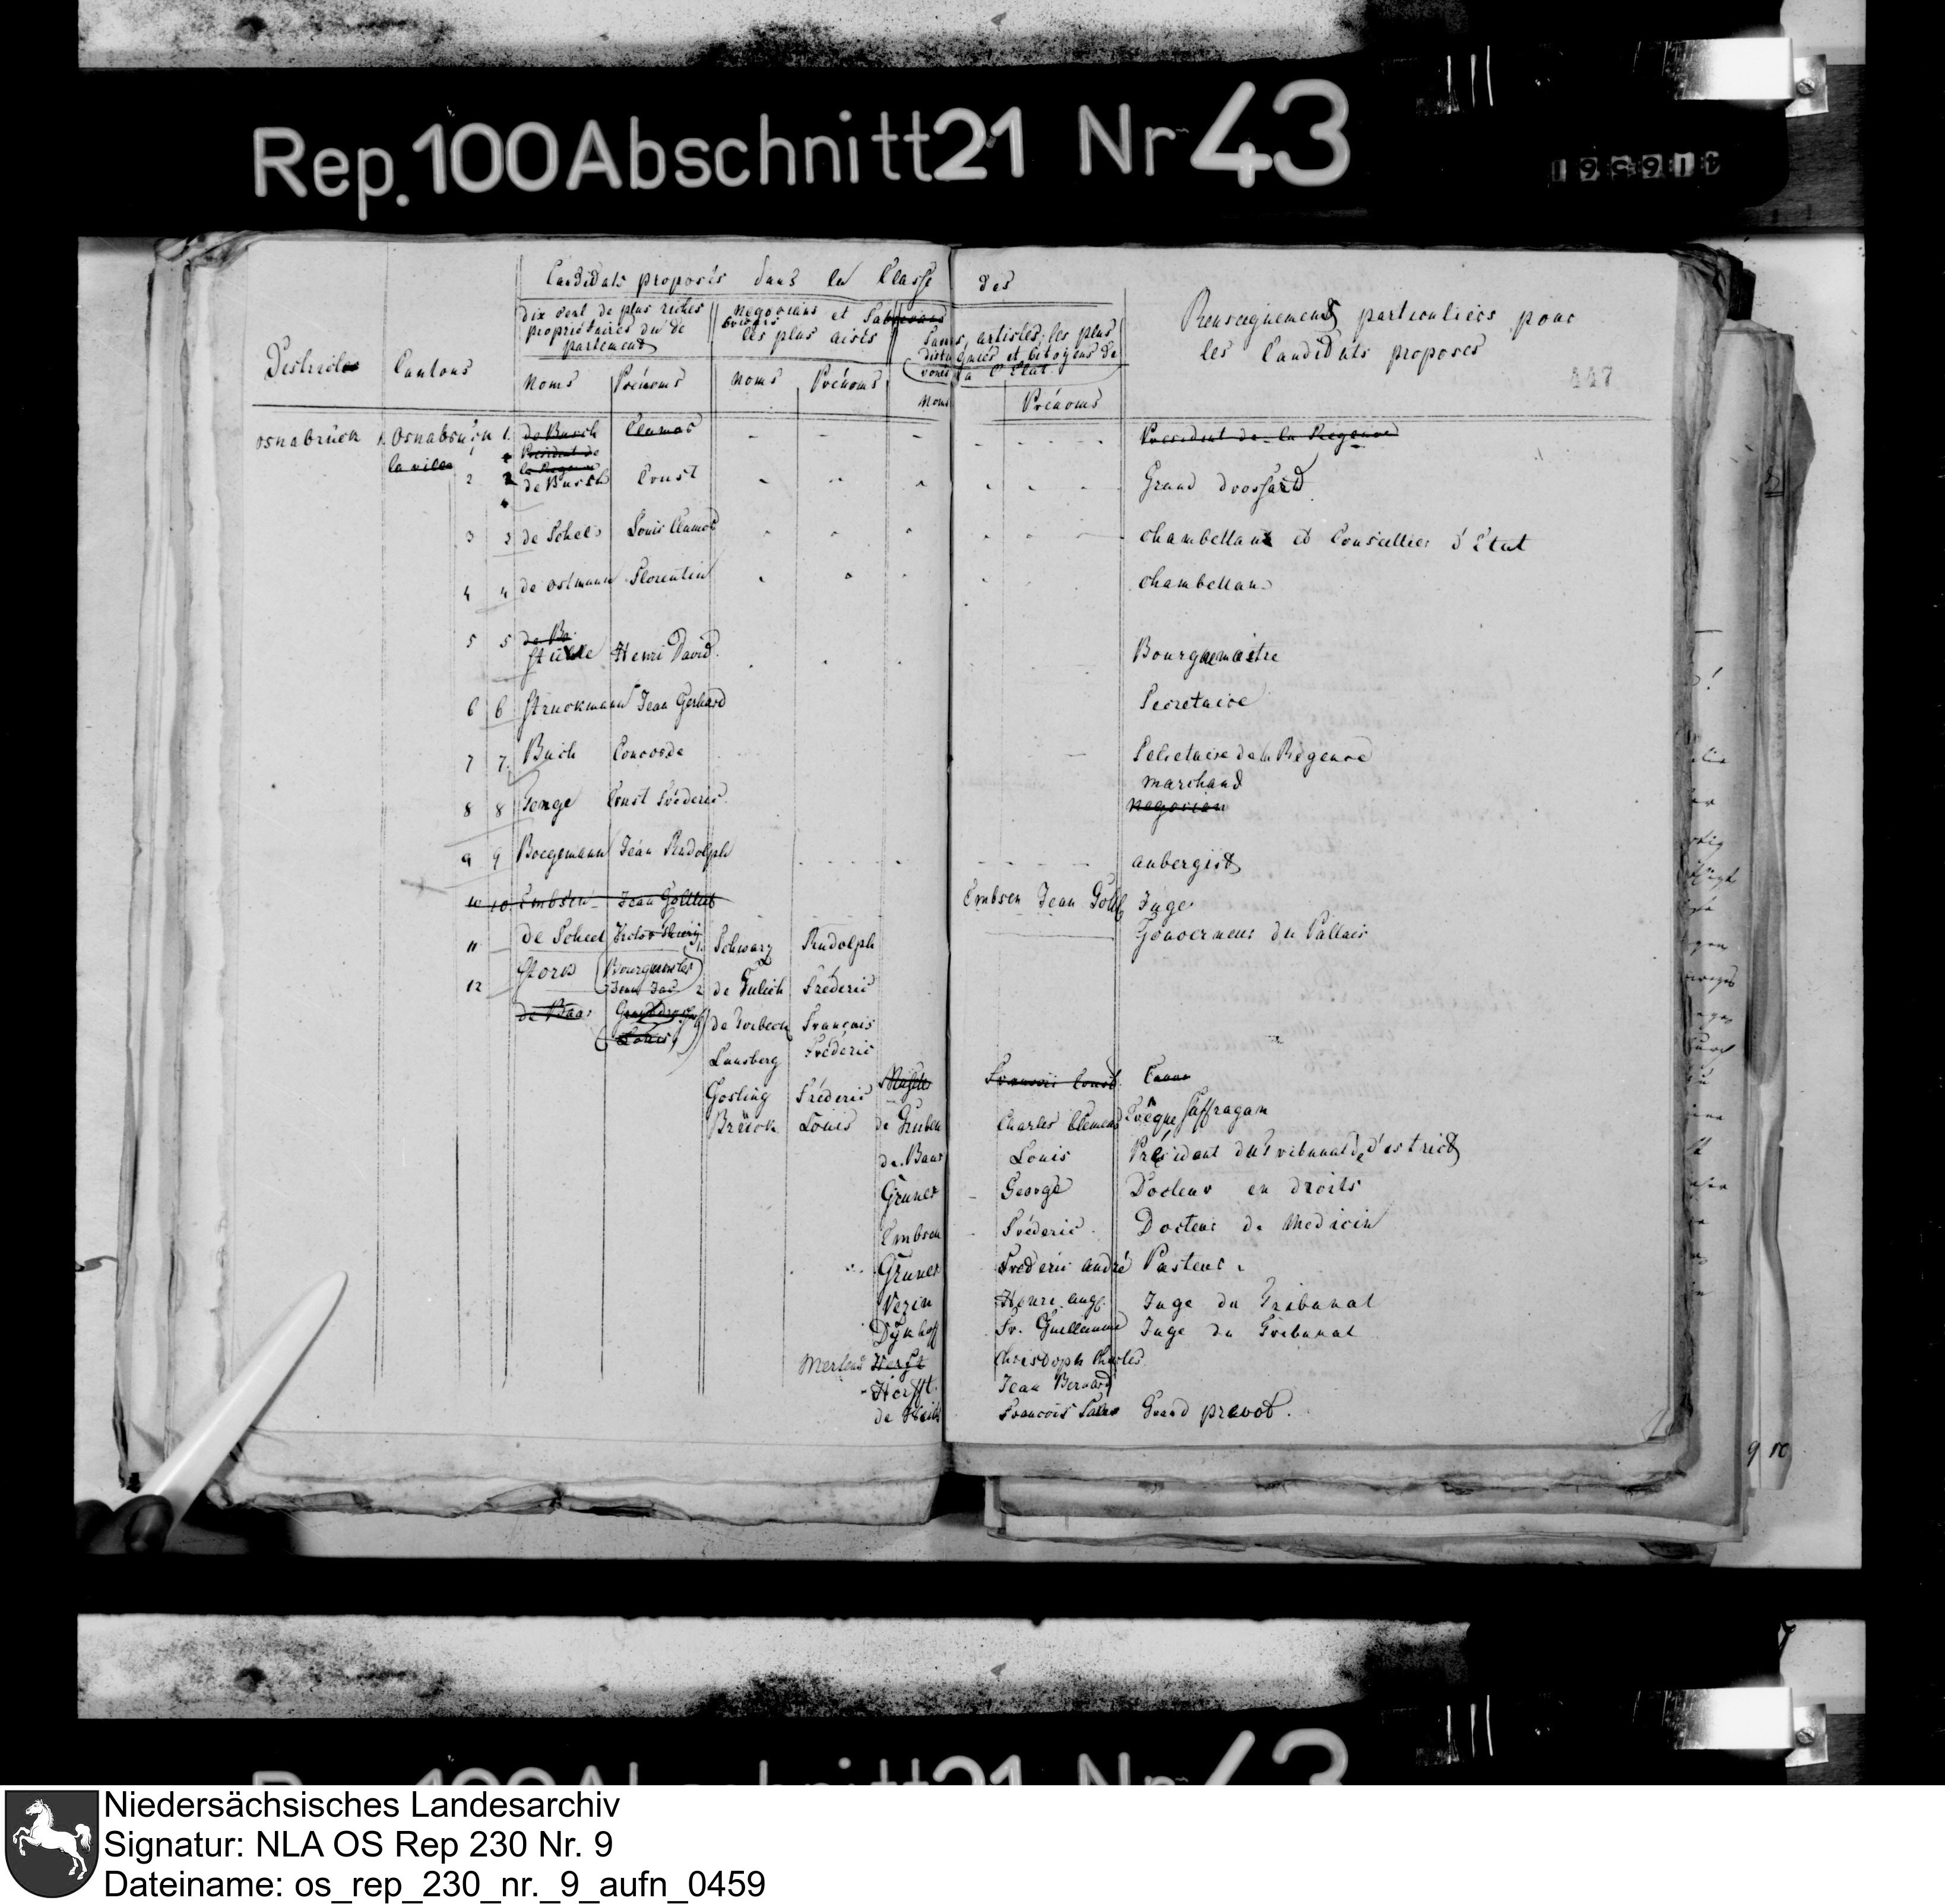 Rep. 100 Abschnitt 21 Nr 43
Candidats proposés dans la Classe des
dix cent de plus riches propriétaires du departement
Negocians et Fabricans les plus aisés
Savans, artistes, les plus distingués et Citoyens devoués a l'Etat
Renseignements particuliers pour les Candidats proposés
447
Districts Cantons Noms Prénoms Noms Prénoms Noms Prénoms
osnabrück 1. Osnabrück 1. de Bussch Clamor President de la Regence
la ville President de la Regence
2 2 de Bussch Ernst Grand drossard
3 3 de Schele Louis Clamor chambellan et Conseillier d'Etat
4 4 de Ostmann Florentin chambellan
5 5 de Ba
Stüve Henri David Bourguemaitre
6 6 Struckmann Jean Gerhard Secretaire
7 7. Buch Concorde Secretaire de la Régence
marchand
8 8 Tenge Ernst Fréderic negocian
9 9 Boegemann Jean Rudolph aubergist
10 10. Embsen Jean Gottlieb Embsen Jean Gottl Juge
11 de Scheel Gouverneur du Pallais
1. Schwarz Rudolph
12 Storck Bourguemster Jean Jac 2 de Gulich Fréderic
de Baar Louis de Gorbeck François
Lansberg Fréderic
François Ernst
Gosling Fréderic
Brück Louis de Gruben Charles Clemens Evêque Suffragan
de Baar Louis Président du Tribunal de district
Gruner George Docteur en droits
Embsen Fréderic Docteur de Medicin
Gruner Frederic André Pasteur
Vezin Henri Aug. Juge du Tribunal
Dykhoff Fr. Guillaume Juge du Tribunal
Mertens Herft Christoph Charles
Herfft Jean Bernard
François Grand prevot.
Niedersächsisches Landesarchiv
Signatur: NLA OS Rep 230 Nr. 9
Dateiname: os_rep_230_nr._9_aufn_0459